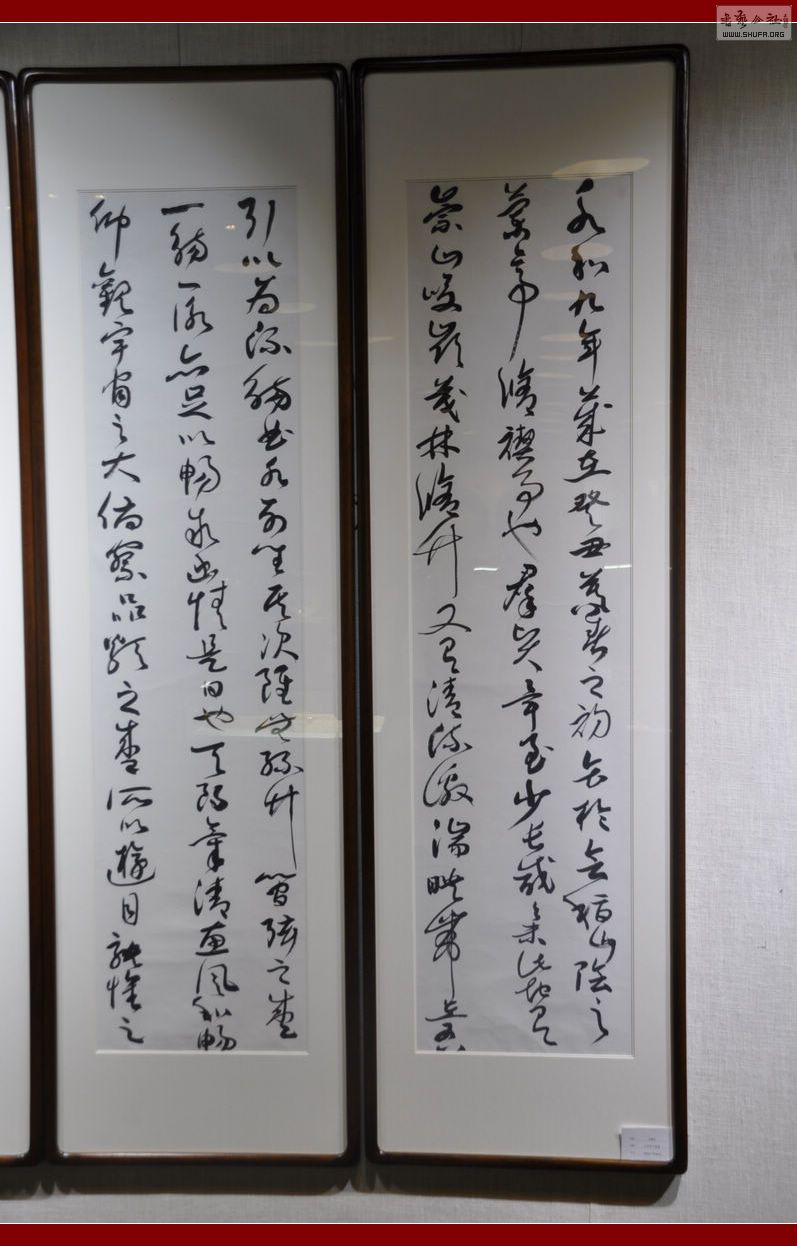 永和九年歲在癸丑暮春之初會於會稽山陰之
蘭亭脩禊事也群賢畢至少長咸集此地有
崇山峻嶺茂林脩竹又有清流激湍映帶左右
引以為流觴曲水列坐其次雖無絲竹管弦之盛
一觴一詠亦足以暢敘幽情是日也天朗氣清惠風和暢
仰觀宇宙之大俯察品類之盛所以遊目騁懷
WWW.SHUFA.ORG